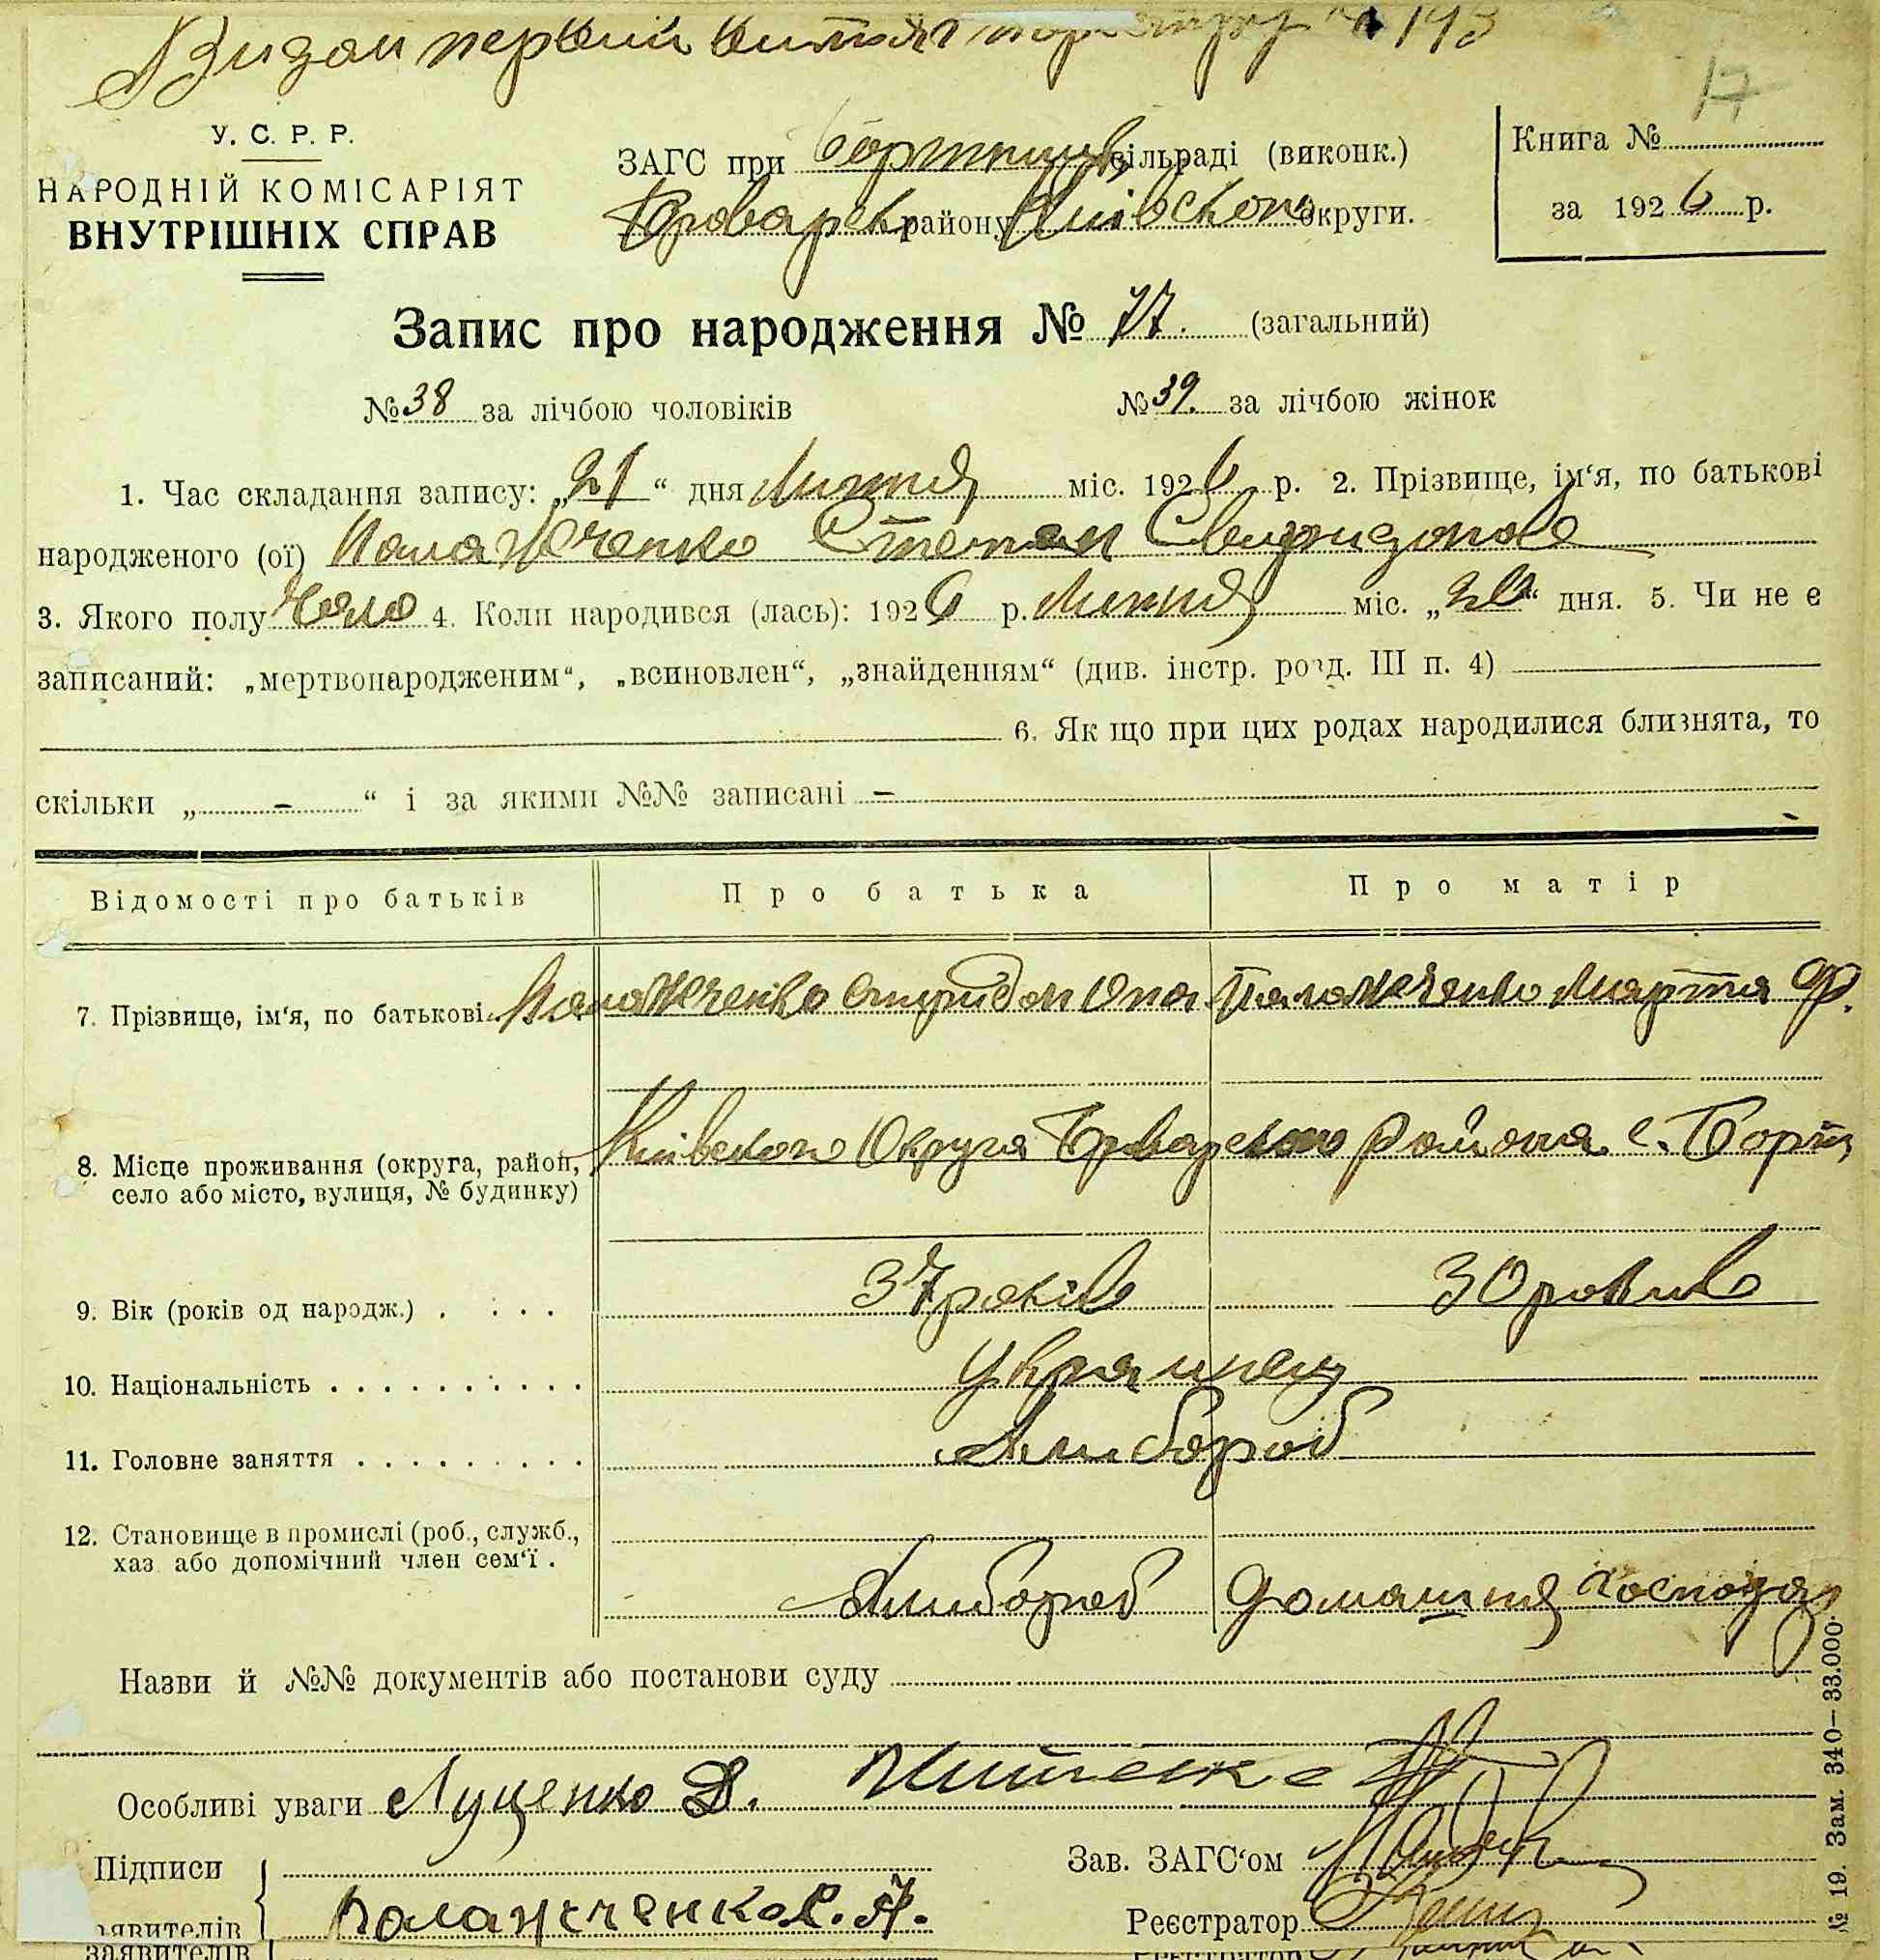 Видан первий витяг
17
У. С. Р. Р.
НАРОДНІЙ КОМІСАРІЯТ
ВНУТРІШНІХ СПРАВ
ЗАГС при сільраді (виконк.)
Броварск району Київского округи.
Книга №
за 1926 р.
Запис про народження № 77. (загальний)
№ 38 за лічбою чоловіків № 39. за лічбою жінок
1. Час складання запису: „21“ дня Липня міс. 1926 р. 2. Прізвище, ім'я, по батькові
народженого (ої) Степан
3. Якого полу Чоло 4. Коли народився (лась): 1926 р. Липня міс. „20“ дня. 5. Чи не є
записаний: „мертвонародженим“, „всиновлен“, „знайденням“ (див. інстр. розд. III п. 4)
6. Як що при цих родах народилися близнята, то
скільки „ - “ і за якими №№ записані -
Відомості про батьків Про батька Про матір
7. Прізвище, ім'я, по батькові Спиридон Марта Ф.
8. Місце проживання (округа, район,
село або місто, вулиця, № будинку)
Київского Округа Броварского Района с. Борт
9. Вік (років од народж.) . . . . 37 років 30 років
10. Національність . . . . . . . . . . Украинец
11. Головне заняття . . . . . . . . . Хлибороб
12. Становище в промислі (роб., служб.,
хаз. або допомічний член сем'ї .
Хлибороб Домашня господар
Назви й №№ документів або постанови суду
Особливі уваги Луценко Д.
Підписи
заявителів
Полажченко С. Я.
Зав. ЗАГС'ом
Реєстратор
заявителів
Реєстратор
№ 19. Зам. 340–33.000.